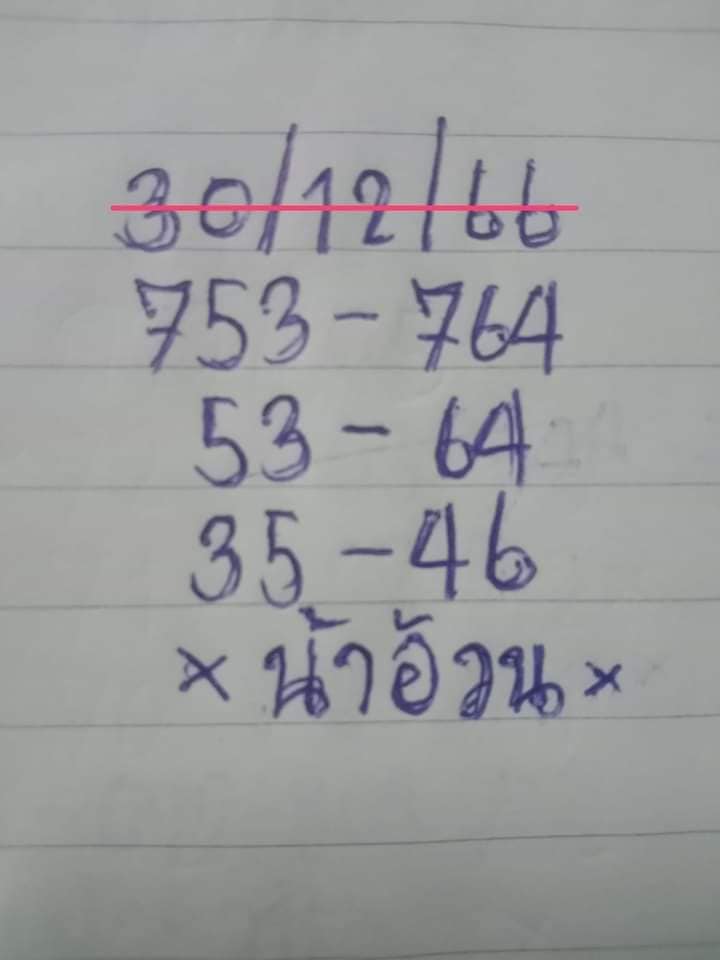 30/12/66
753 - 764
53 - 64
35 - 46
× น้าอ้วน ×